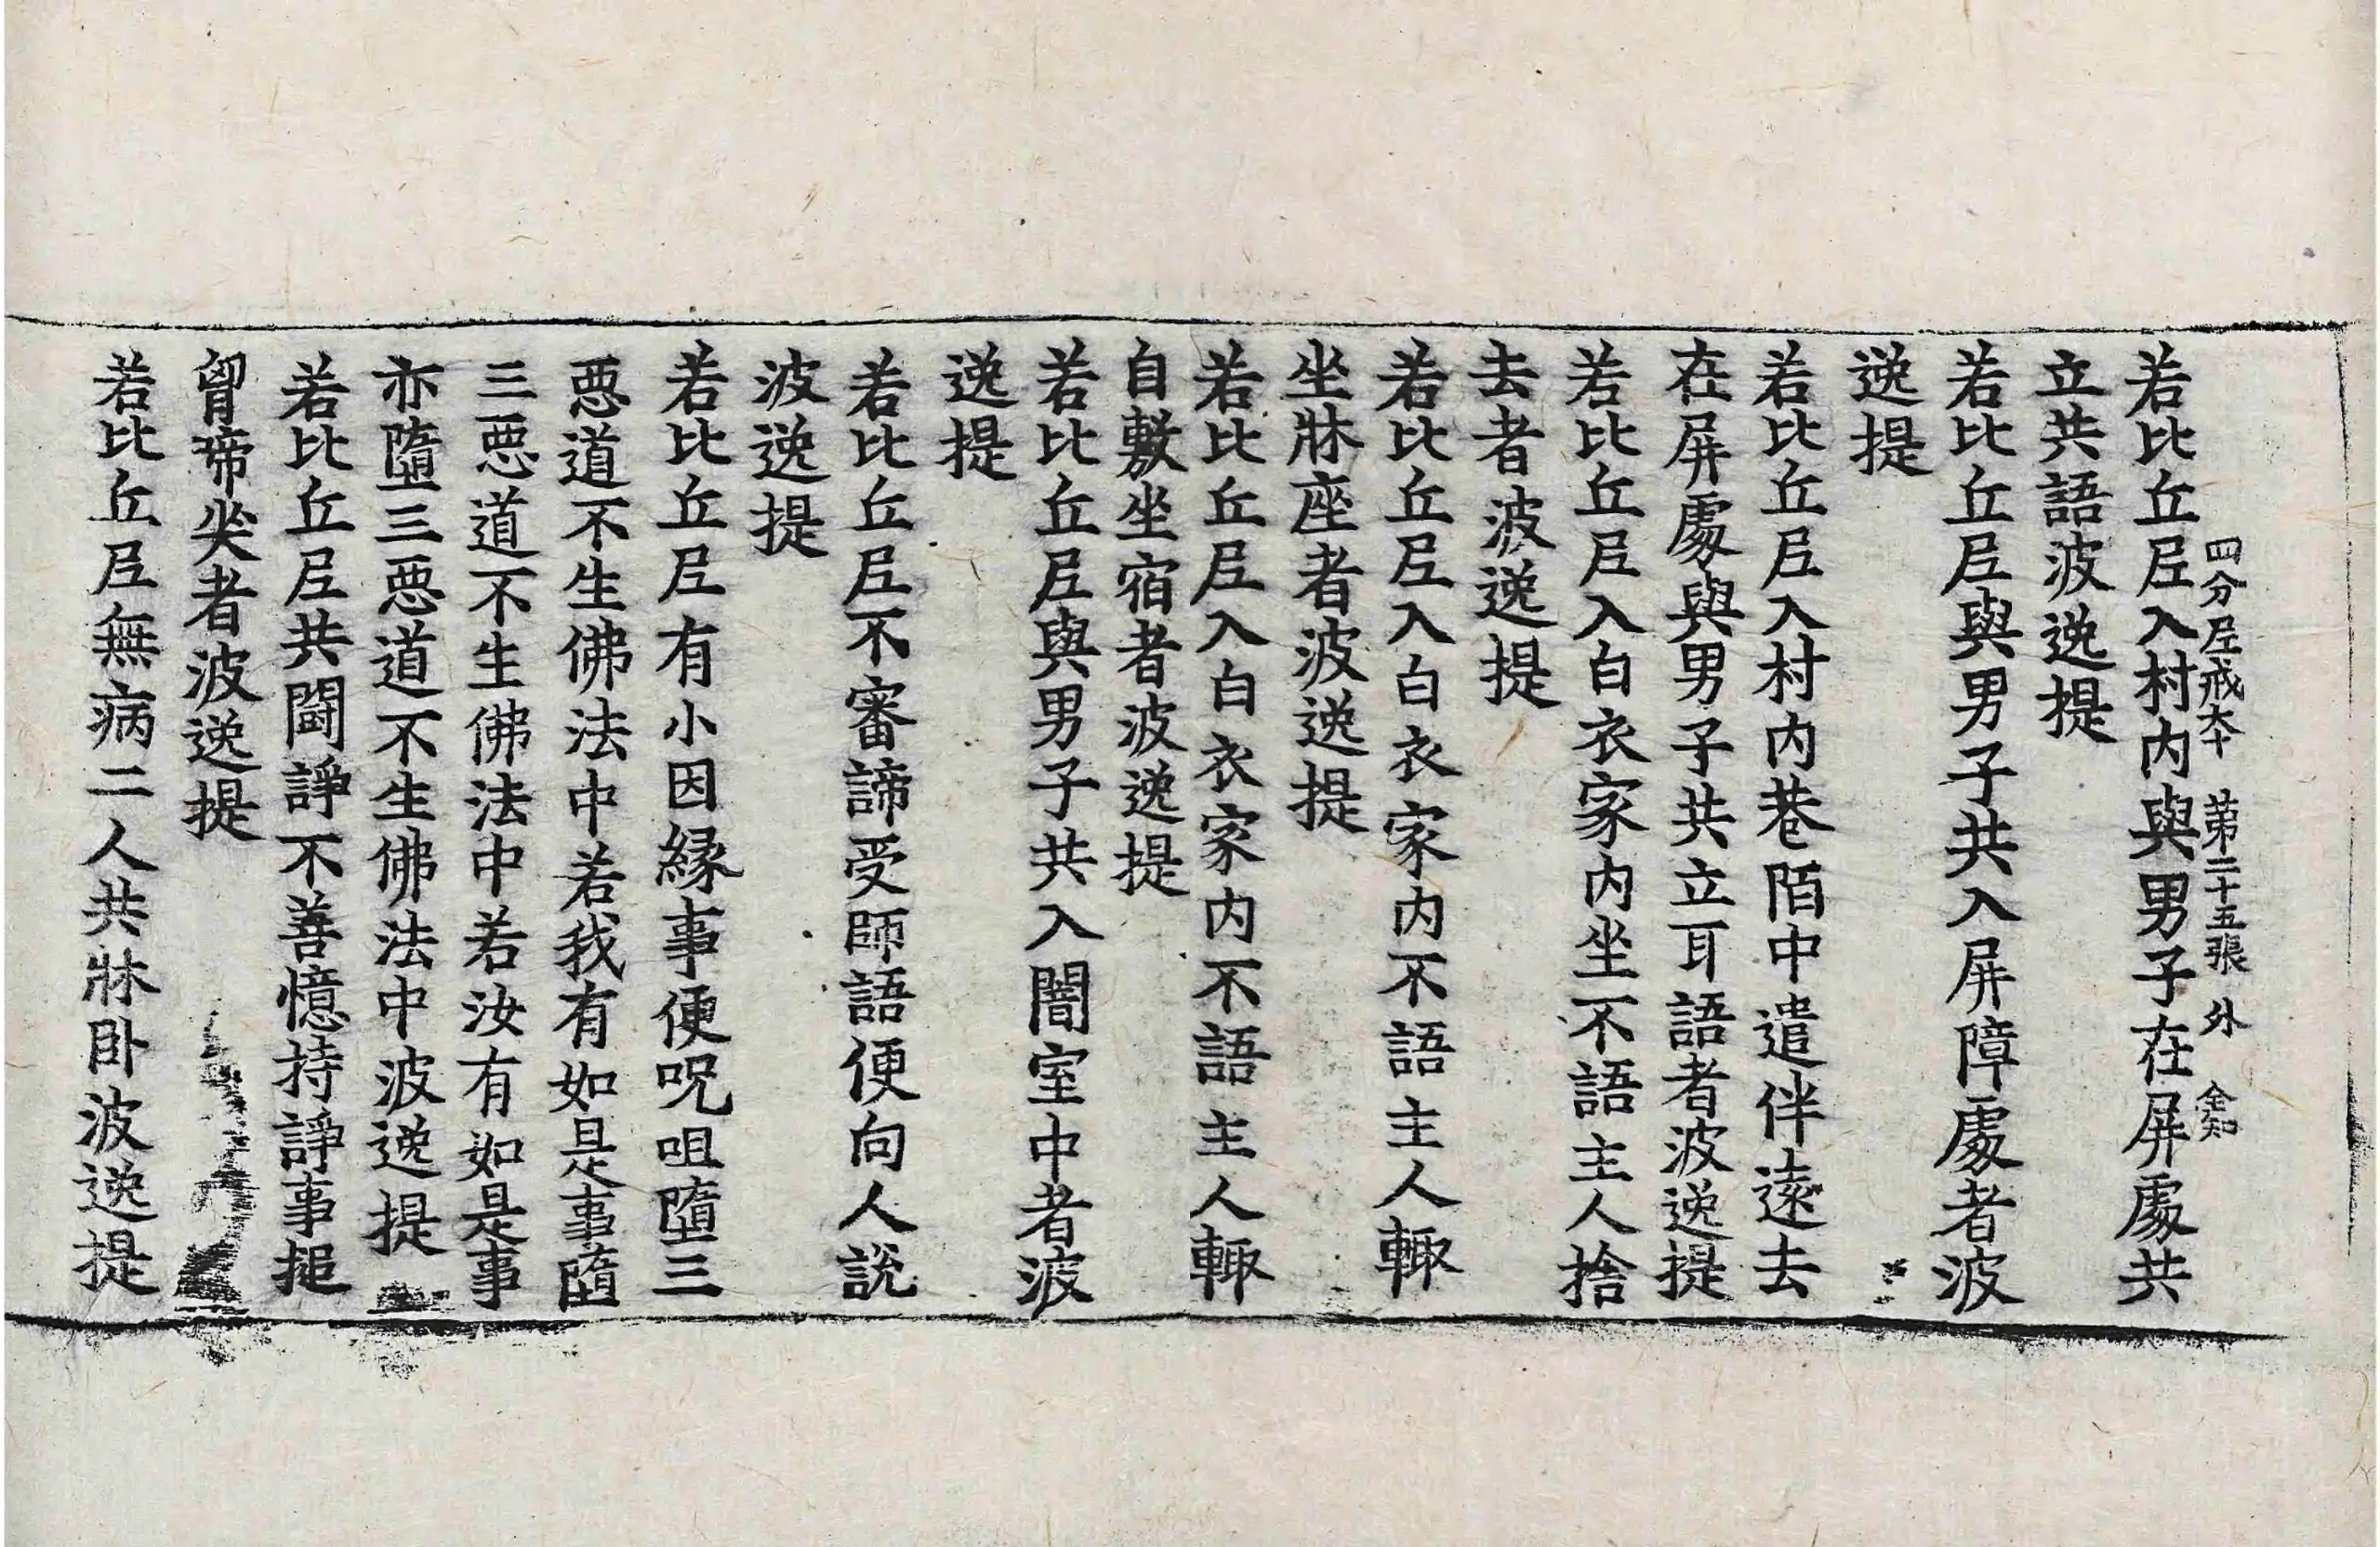 四分尼戒本 第二十五張 外 金知
若比丘尼入村内與男子在屏處共
立共語波逸提
若比丘尼與男子共入屏障處者波
逸提
若比丘尼入村内巷陌中遣伴遠去
在屏處與男子共立耳語者波逸提
若比丘尼入白衣家内坐不語主人捨
去者波逸提
若比丘尼入白衣家内不語主人輙
坐牀座者波逸提
若比丘尼入白衣家内不語主人輙
自敷坐宿者波逸提
若比丘尼與男子共入闇室中者波
逸提
若比丘尼不審諦受師語便向人說
波逸提
若比丘尼有小因緣事便呪咀墮三
惡道不生佛法中若我有如是事墮
三惡道不生佛法中若汝有如是事
亦墮三惡道不生佛法中波逸提
若比丘尼共鬪諍不善憶持諍事搥
胷啼哭者波逸提
若比丘尼無病二人共牀卧波逸提